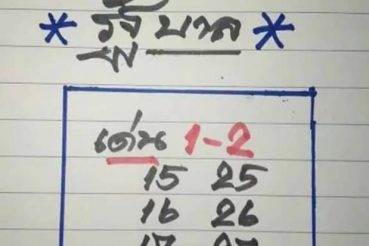 * รัฐบาล *
เด่น 1-2
15 25
16 26
17 27